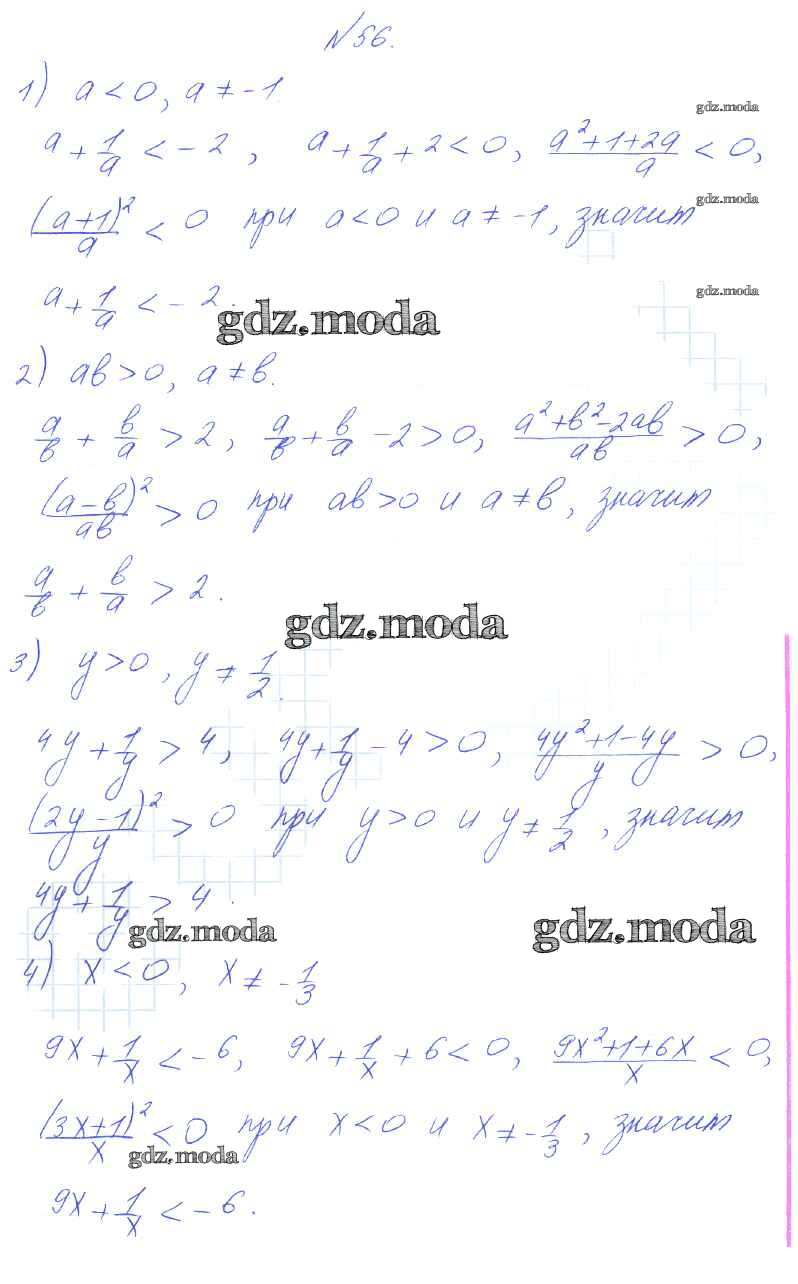 №56.
1) a < 0, a ≠ -1.
gdz.moda
a + 1/a < -2, a + 1/a + 2 < 0, (a²+1+2a)/a < 0,
(a+1)²/a < 0 при a<0 и a ≠ -1, значит
gdz.moda
a + 1/a < -2.
gdz.moda
gdz.moda
2) ab > 0, a ≠ b.
a/b + b/a > 2, a/b + b/a - 2 > 0, (a²+b²-2ab)/ab > 0,
(a-b)²/ab > 0 при ab>0 и a ≠ b, значит
a/b + b/a > 2.
gdz.moda
3) y > 0, y ≠ 1/2.
4y + 1/y > 4, 4y + 1/y - 4 > 0, (4y²+1-4y)/y > 0,
(2y-1)²/y > 0 при y>0 и y ≠ 1/2, значит
4y + 1/y > 4.
gdz.moda
gdz.moda
4) x < 0, x ≠ -1/3
9x + 1/x < -6, 9x + 1/x + 6 < 0, (9x²+1+6x)/x < 0,
(3x+1)²/x < 0 при x<0 и x ≠ -1/3, значит
gdz.moda
9x + 1/x < -6.